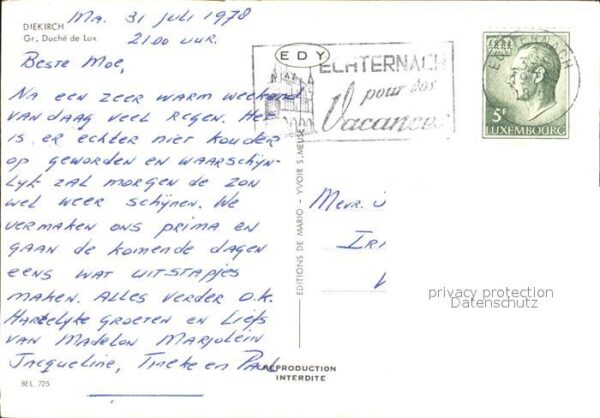 DIEKIRCH
Gr. Duché de Lux
Ma. 31 juli 1978
21.00 uur.
Beste Moe,
Na een zeer warm weekend
vandaag veel regen. Het
is er echter niet kouder
op geworden en waarschijn-
lijk zal morgen de zon
wel weer schijnen. We
vermaken ons prima en
gaan de komende dagen
eens wat uitstapjes
maken. Alles verder o.k.
Hartelijke groeten en liefs
van Madelon Marjolein
Jacqueline, Tineke en Paul
BEL 725
EDITIONS DE MARIO - YVOIR S. MEUSE
REPRODUCTION
INTERDITE
EDY
ECHTERNACH
pour vos
Vacances
ECHTERNACH
5F
LUXEMBOURG
Mevr.
privacy protection
Datenschutz